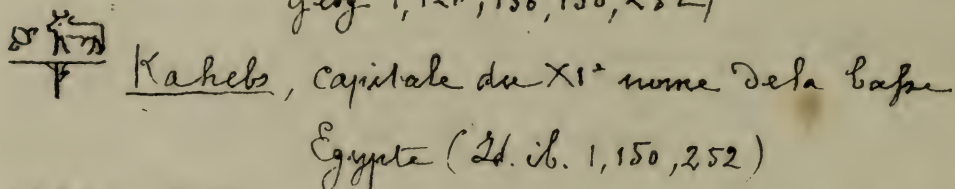 géog 1, 121, 130, 150, 252)
Kahebs, capitale du XIe nome de la basse
Égypte (Id. ib. 1, 150, 252)